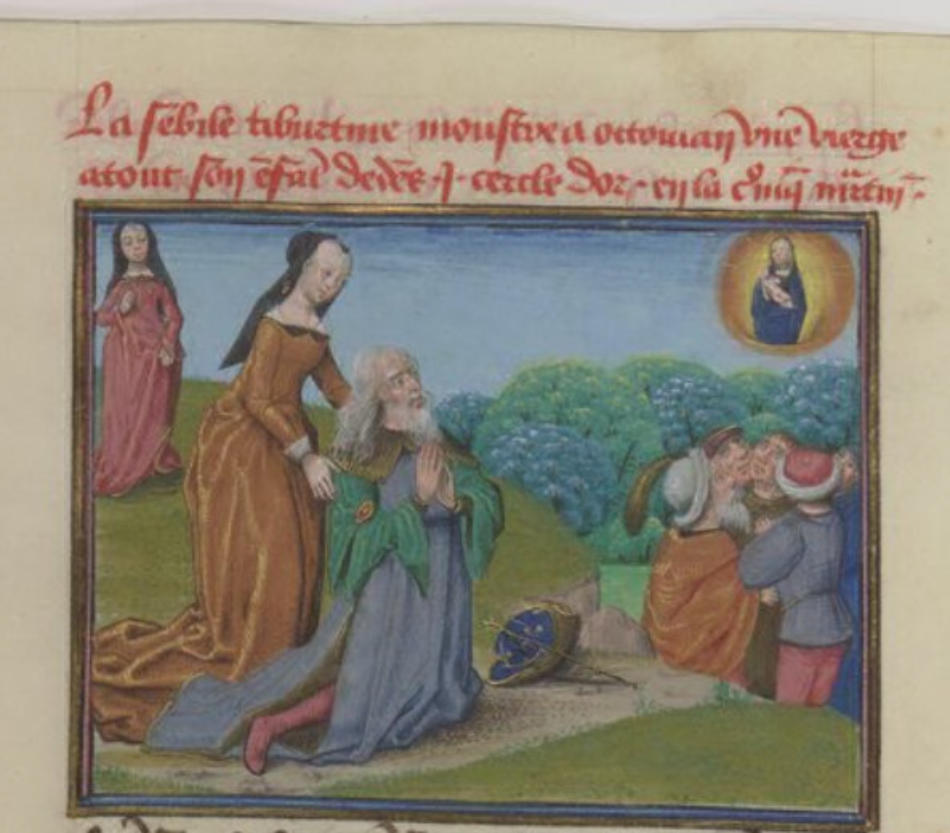 La sebile tiburtine monstre a octovian une vierge
atout son efāt dedēs .j. cercle dor. en la